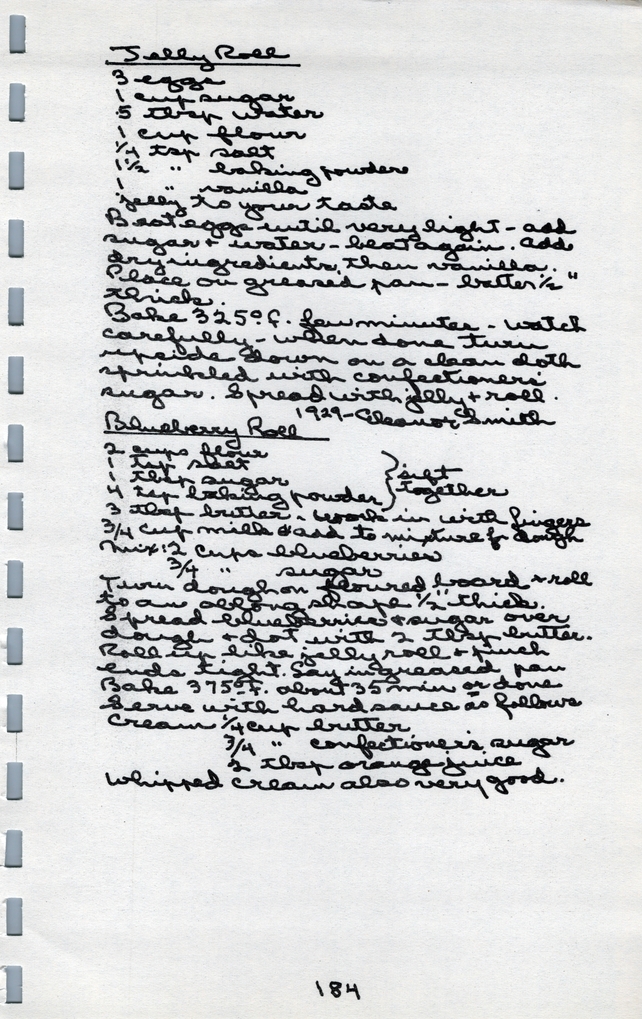 Jelly Roll
3 eggs
1 cup sugar
5 tbsp water
1 cup flour
1/4 tsp salt
1 1/2 " baking powder
1 " vanilla
jelly to your taste
Beat eggs until very light - add
sugar + water - beat again. add
dry ingredients, then vanilla.
Place on greased pan - batter 1/2"
thick.
Bake 325° F. few minutes - watch
carefully - when done turn
upside down on a clean cloth
sprinkled with confectioners'
sugar. Spread with jelly + roll.
1929 - Eleanor Smith
Blueberry Roll
2 cups flour
1 tsp salt
1 tbsp sugar
4 tsp baking powder } sift together
3 tbsp butter - work in with fingers
3/4 cup milk + add to mixture for dough
Mix: 2 cups blueberries
3/4 " sugar
Turn dough on floured board + roll
to an oblong shape 1/2" thick.
Spread blueberries + sugar over
dough + dot with 2 tbsp butter.
Roll up like jelly roll + pinch
ends tight. Lay in greased pan
Bake 375° F. about 35 min or done
Serve with hard sauce as follows
Cream 1/4 cup butter
3/4 " confectioner's sugar
2 tbsp orange juice
Whipped cream also very good.
184